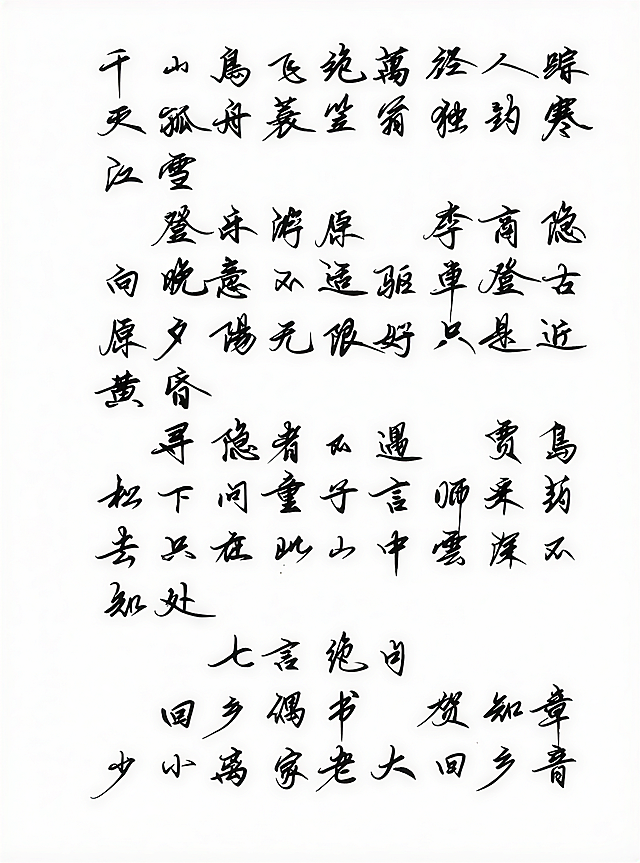 千山鳥飞绝萬径人踪
灭孤舟蓑笠翁独钓寒
江雪
登乐游原 李商隐
向晚意不适驱車登古
原夕陽无限好只是近
黄昏
寻隐者不遇 贾岛
松下问童子言师采药
去只在此山中雲深不
知处
七言绝句
回乡偶书 贺知章
少小离家老大回乡音